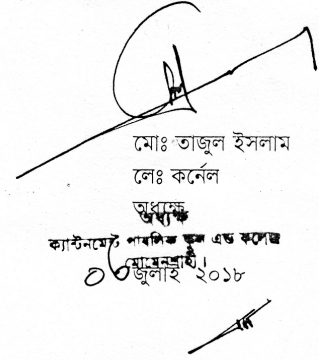 মোঃ তাজুল ইসলাম
লেঃ কর্নেল
অধ্যক্ষ
অধ্যক্ষ
ক্যান্টনমেন্ট পাবলিক স্কুল এন্ড কলেজ
মোমেনশাহী।
০৮ জুলাই ২০১৮